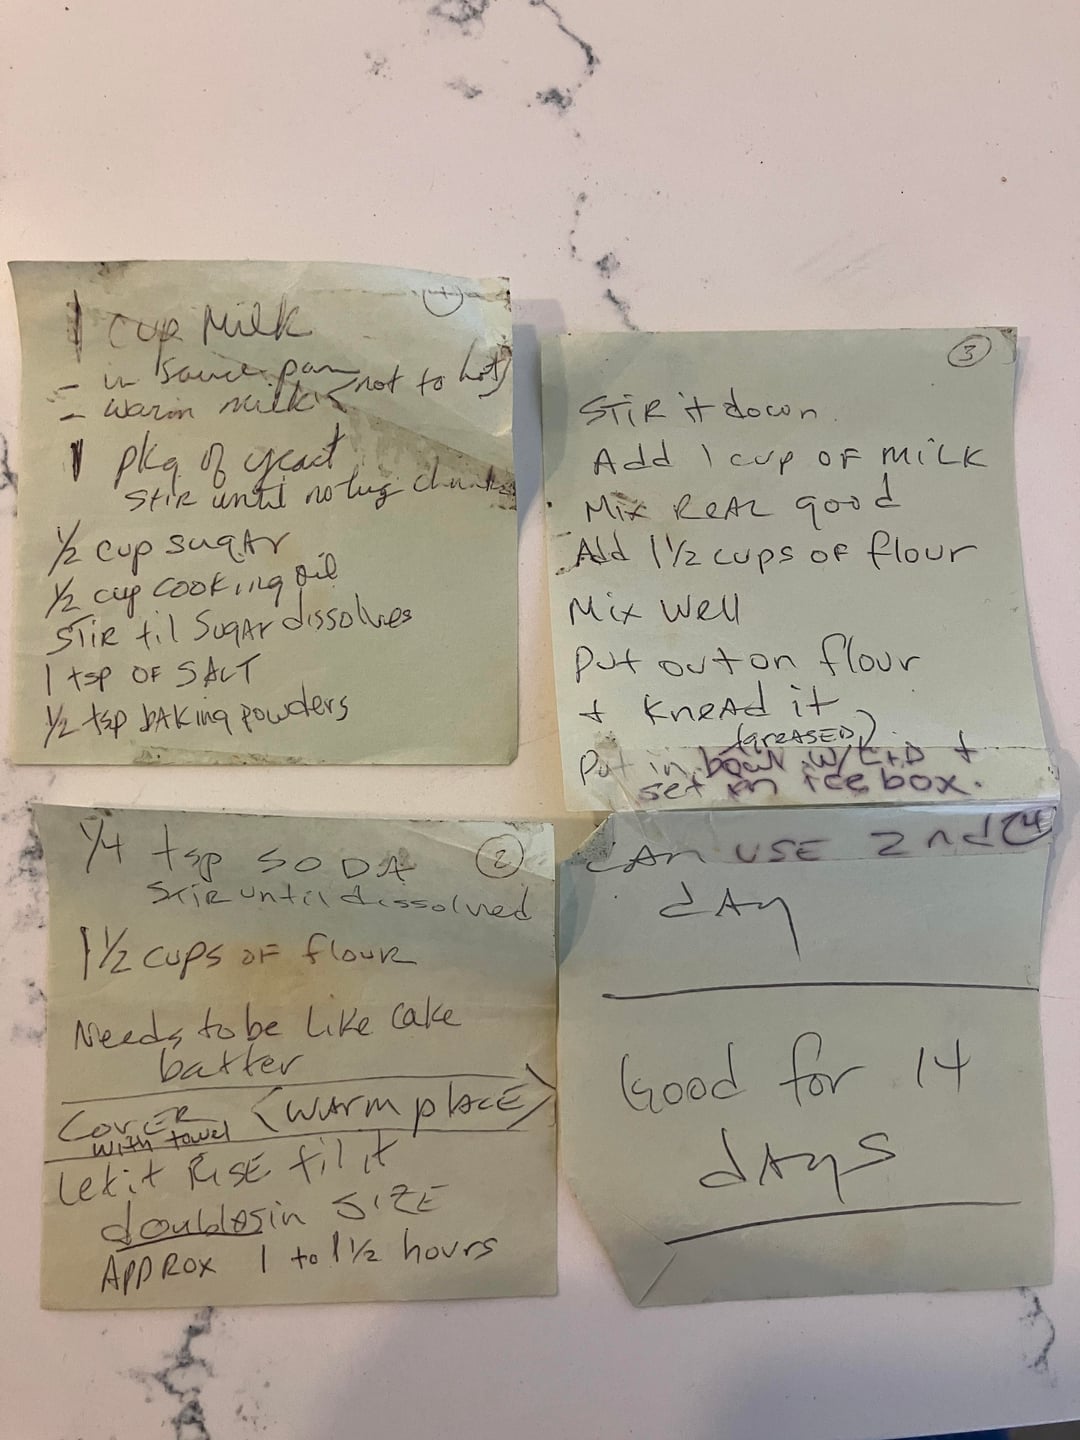 1
1 cup Milk
- in sauce pan
- warm milk <not to hot>
1 pkg of yeast
Stir until no lug chunks
1/2 cup sugar
1/2 cup cooking oil
Stir til sugar dissolves
1 tsp of SALT
1/2 tsp baking powders
2
1/4 tsp SODA
Stir until dissolved
1 1/2 cups of flour
Needs to be like cake
batter
Cover <Warm place>
with towel
Let it Rise til it
doubles in SIZE
Approx 1 to 1 1/2 hours
3
Stir it down
Add 1 cup of MiLK
Mix Real good
Add 1 1/2 cups of flour
Mix Well
Put out on flour
+ Knead it
(greased)
Put in bowl w/ Lid +
set in icebox.
4
CAN USE 2nd
day
Good for 14
days